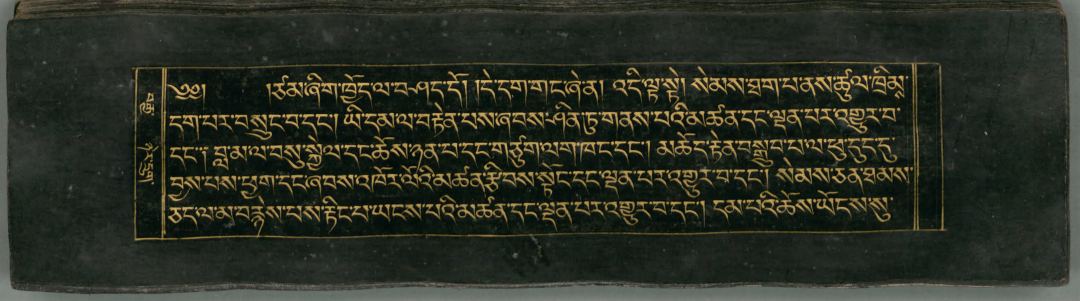 ༄༅། །ཙམ་ཞིག་ཁྱོད་ལ་བཤད་དོ། །དེ་དག་གང་ཞེ་ན། འདི་ལྟ་སྟེ། སེམས་ཐག་པ་ནས་ཚུལ་ཁྲིམས་
དག་པར་བསྲུང་བ་དང་། ཡི་དམ་ལ་བརྟེན་པས་ཞབས་ཤིན་ཏུ་གནས་པའི་མཚན་དང་ལྡན་པར་འགྱུར་བ་
དང་༔ བླ་མ་ལ་བསུ་སྐྱེལ་དང་ཆོས་ཉན་པ་དང་གཙུག་ལག་ཁང་དང་། མཆོད་རྟེན་བསྒྲུབ་པ་ལ་ཕུ་དུད་དུ་
བྱས་པས་ཕྱག་དང་ཞབས་འཁོར་ལོའི་མཚན་རྩིབས་སྟོང་དང་ལྡན་པར་འགྱུར་བ་དང་། སེམས་ཅན་ཐམས་
ཅད་ལ་མ་བརྙེས་པས་རྟིང་པ་ཡངས་པའི་མཚན་དང་ལྡན་པར་འགྱུར་བ་དང་། དམ་པའི་ཆོས་ཡོངས་སུ་